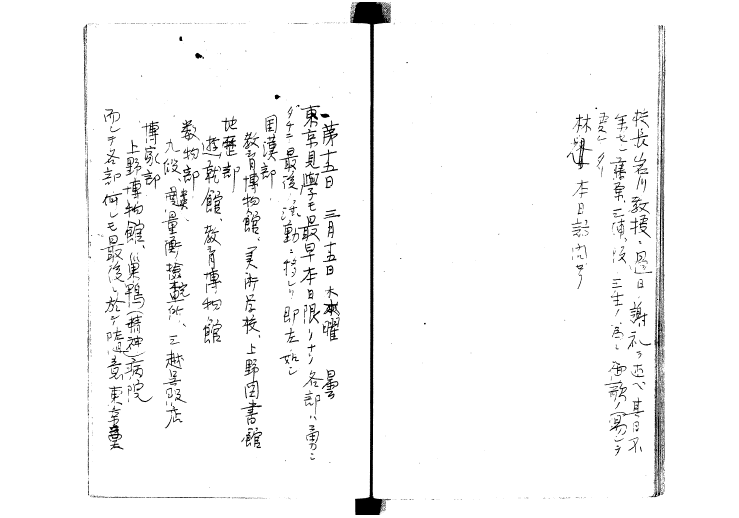 校長岩川教授ニ過日ノ謝礼ヲ述ベ其日不
在セシ藤原、三浦、後、三生ノ為ニ御歌ノ寫シヲ
受ケタリ
林 本日訪問ス
第十五日 三月十五日 木曜 曇
東京見學モ最早本日限リトナリ各部ハ勇ニ
最後ノ活動ニ移レリ即左ノ如シ
国漢部
教育博物館、美術学校、上野図書館
地歴部
遊就館、教育博物館
数物部
九段、度量衡検定所、三越呉服店
博家部
上野博物館、巣鴨(精神)病院
而シテ各部何レモ最後ニ於テ随意東京